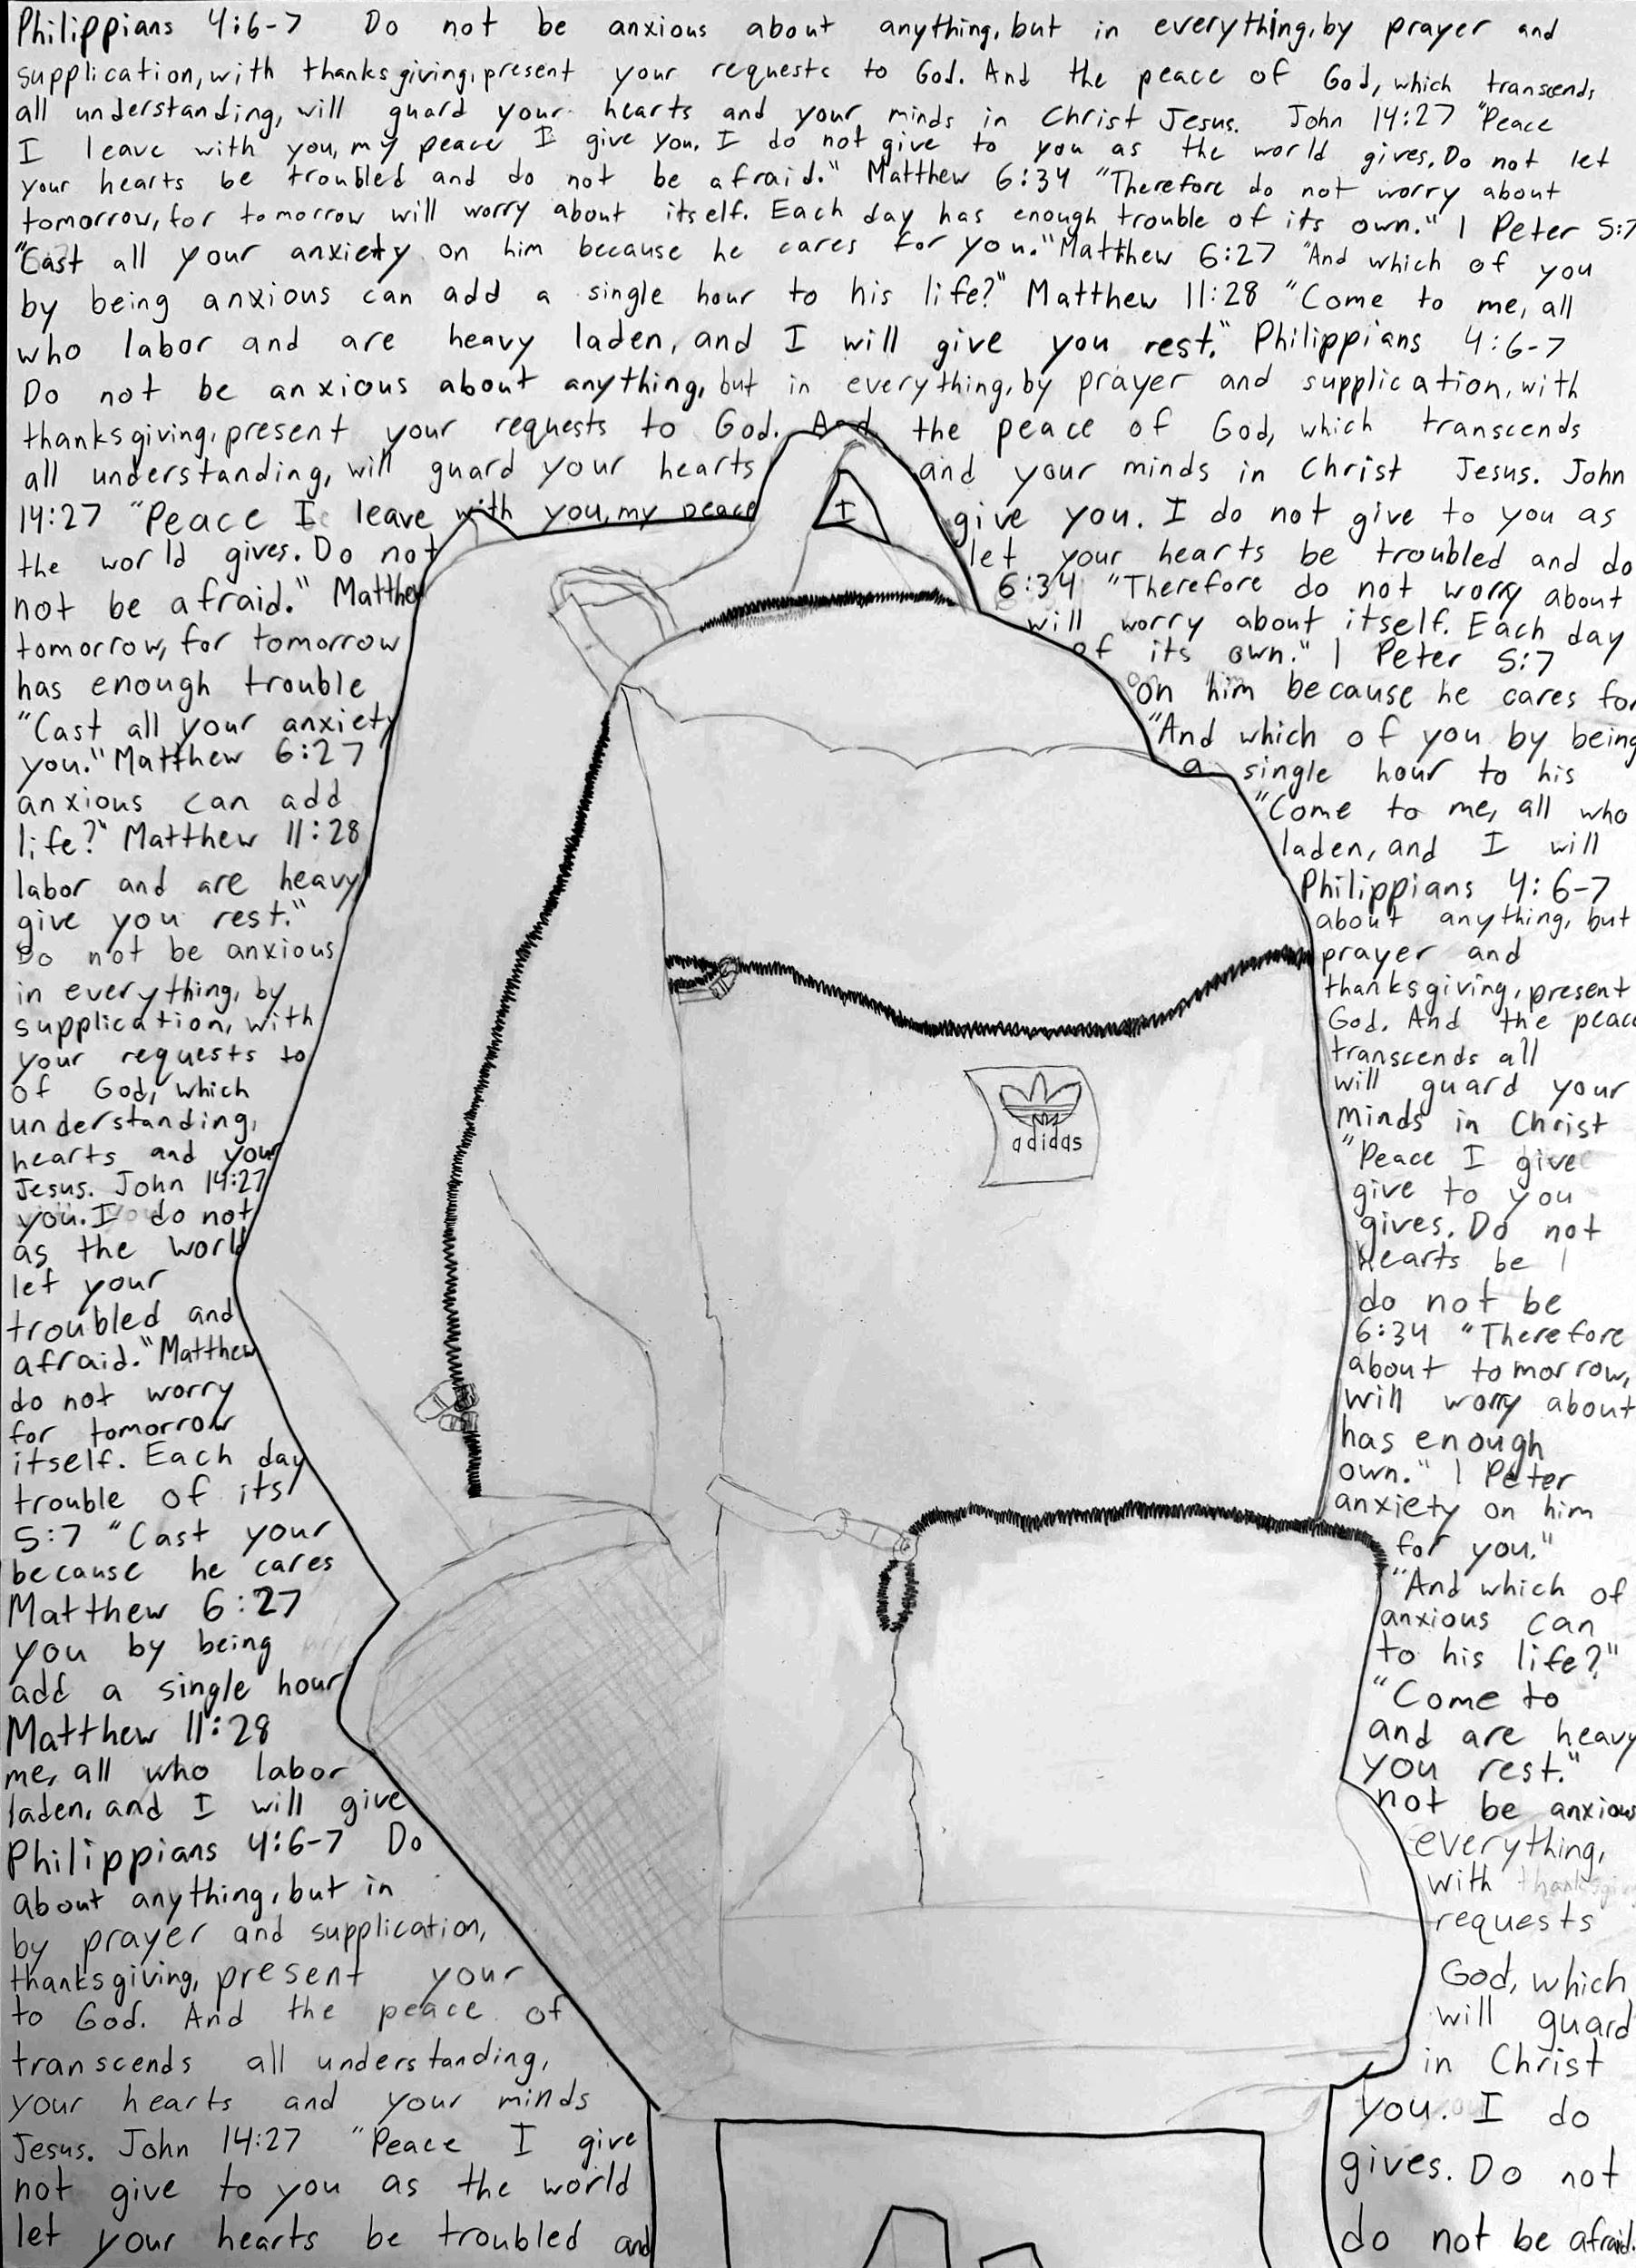 Philippians 4:6-7 Do not be anxious about anything, but in everything, by prayer and
supplication, with thanksgiving, present your requests to God. And the peace of God, which transcends
all understanding, will guard your hearts and your minds in Christ Jesus. John 14:27 "Peace
I leave with you, my peace I give you. I do not give to you as the world gives. Do not let
your hearts be troubled and do not be afraid." Matthew 6:34 "Therefore do not worry about
tomorrow, for tomorrow will worry about itself. Each day has enough trouble of its own." 1 Peter 5:7
"Cast all your anxiety on him because he cares for you." Matthew 6:27 "And which of you
by being anxious can add a single hour to his life?" Matthew 11:28 "Come to me, all
who labor and are heavy laden, and I will give you rest." Philippians 4:6-7
Do not be anxious about anything, but in everything, by prayer and supplication, with
thanksgiving, present your requests to God. And the peace of God, which transcends
all understanding, will guard your hearts and your minds in Christ Jesus. John
14:27 "Peace I leave with you, my peace I give you. I do not give to you as
the world gives. Do not let your hearts be troubled and do
not be afraid." Matthew 6:34 "Therefore do not worry about
tomorrow, for tomorrow will worry about itself. Each day
has enough trouble of its own." 1 Peter 5:7
"Cast all your anxiety on him because he cares for
you." Matthew 6:27 "And which of you by being
anxious can add a single hour to his
life?" Matthew 11:28 "Come to me, all who
labor and are heavy laden, and I will
give you rest." Philippians 4:6-7
Do not be anxious about anything, but
in everything, by prayer and
supplication, with thanksgiving, present
your requests to God. And the peace
of God, which transcends all
understanding, will guard your
hearts and your minds in Christ
adidas
Jesus. John 14:27 "Peace I give
you. I do not give to you
as the world gives. Do not
let your hearts be
troubled and do not be
afraid." Matthew 6:34 "Therefore
do not worry about tomorrow,
for tomorrow will worry about
itself. Each day has enough
trouble of its own." 1 Peter
5:7 "Cast your anxiety on him
because he cares for you."
Matthew 6:27 "And which of
you by being anxious can
add a single hour to his life?"
Matthew 11:28 "Come to
me, all who labor and are heavy
laden, and I will give you rest."
Philippians 4:6-7 Do not be anxious
about anything, but in everything,
by prayer and supplication, with
thanksgiving, present your requests
to God. And the peace of God, which
transcends all understanding, will guard
your hearts and your minds in Christ
Jesus. John 14:27 "Peace I give you. I do
not give to you as the world gives. Do not
let your hearts be troubled and do not be afraid.